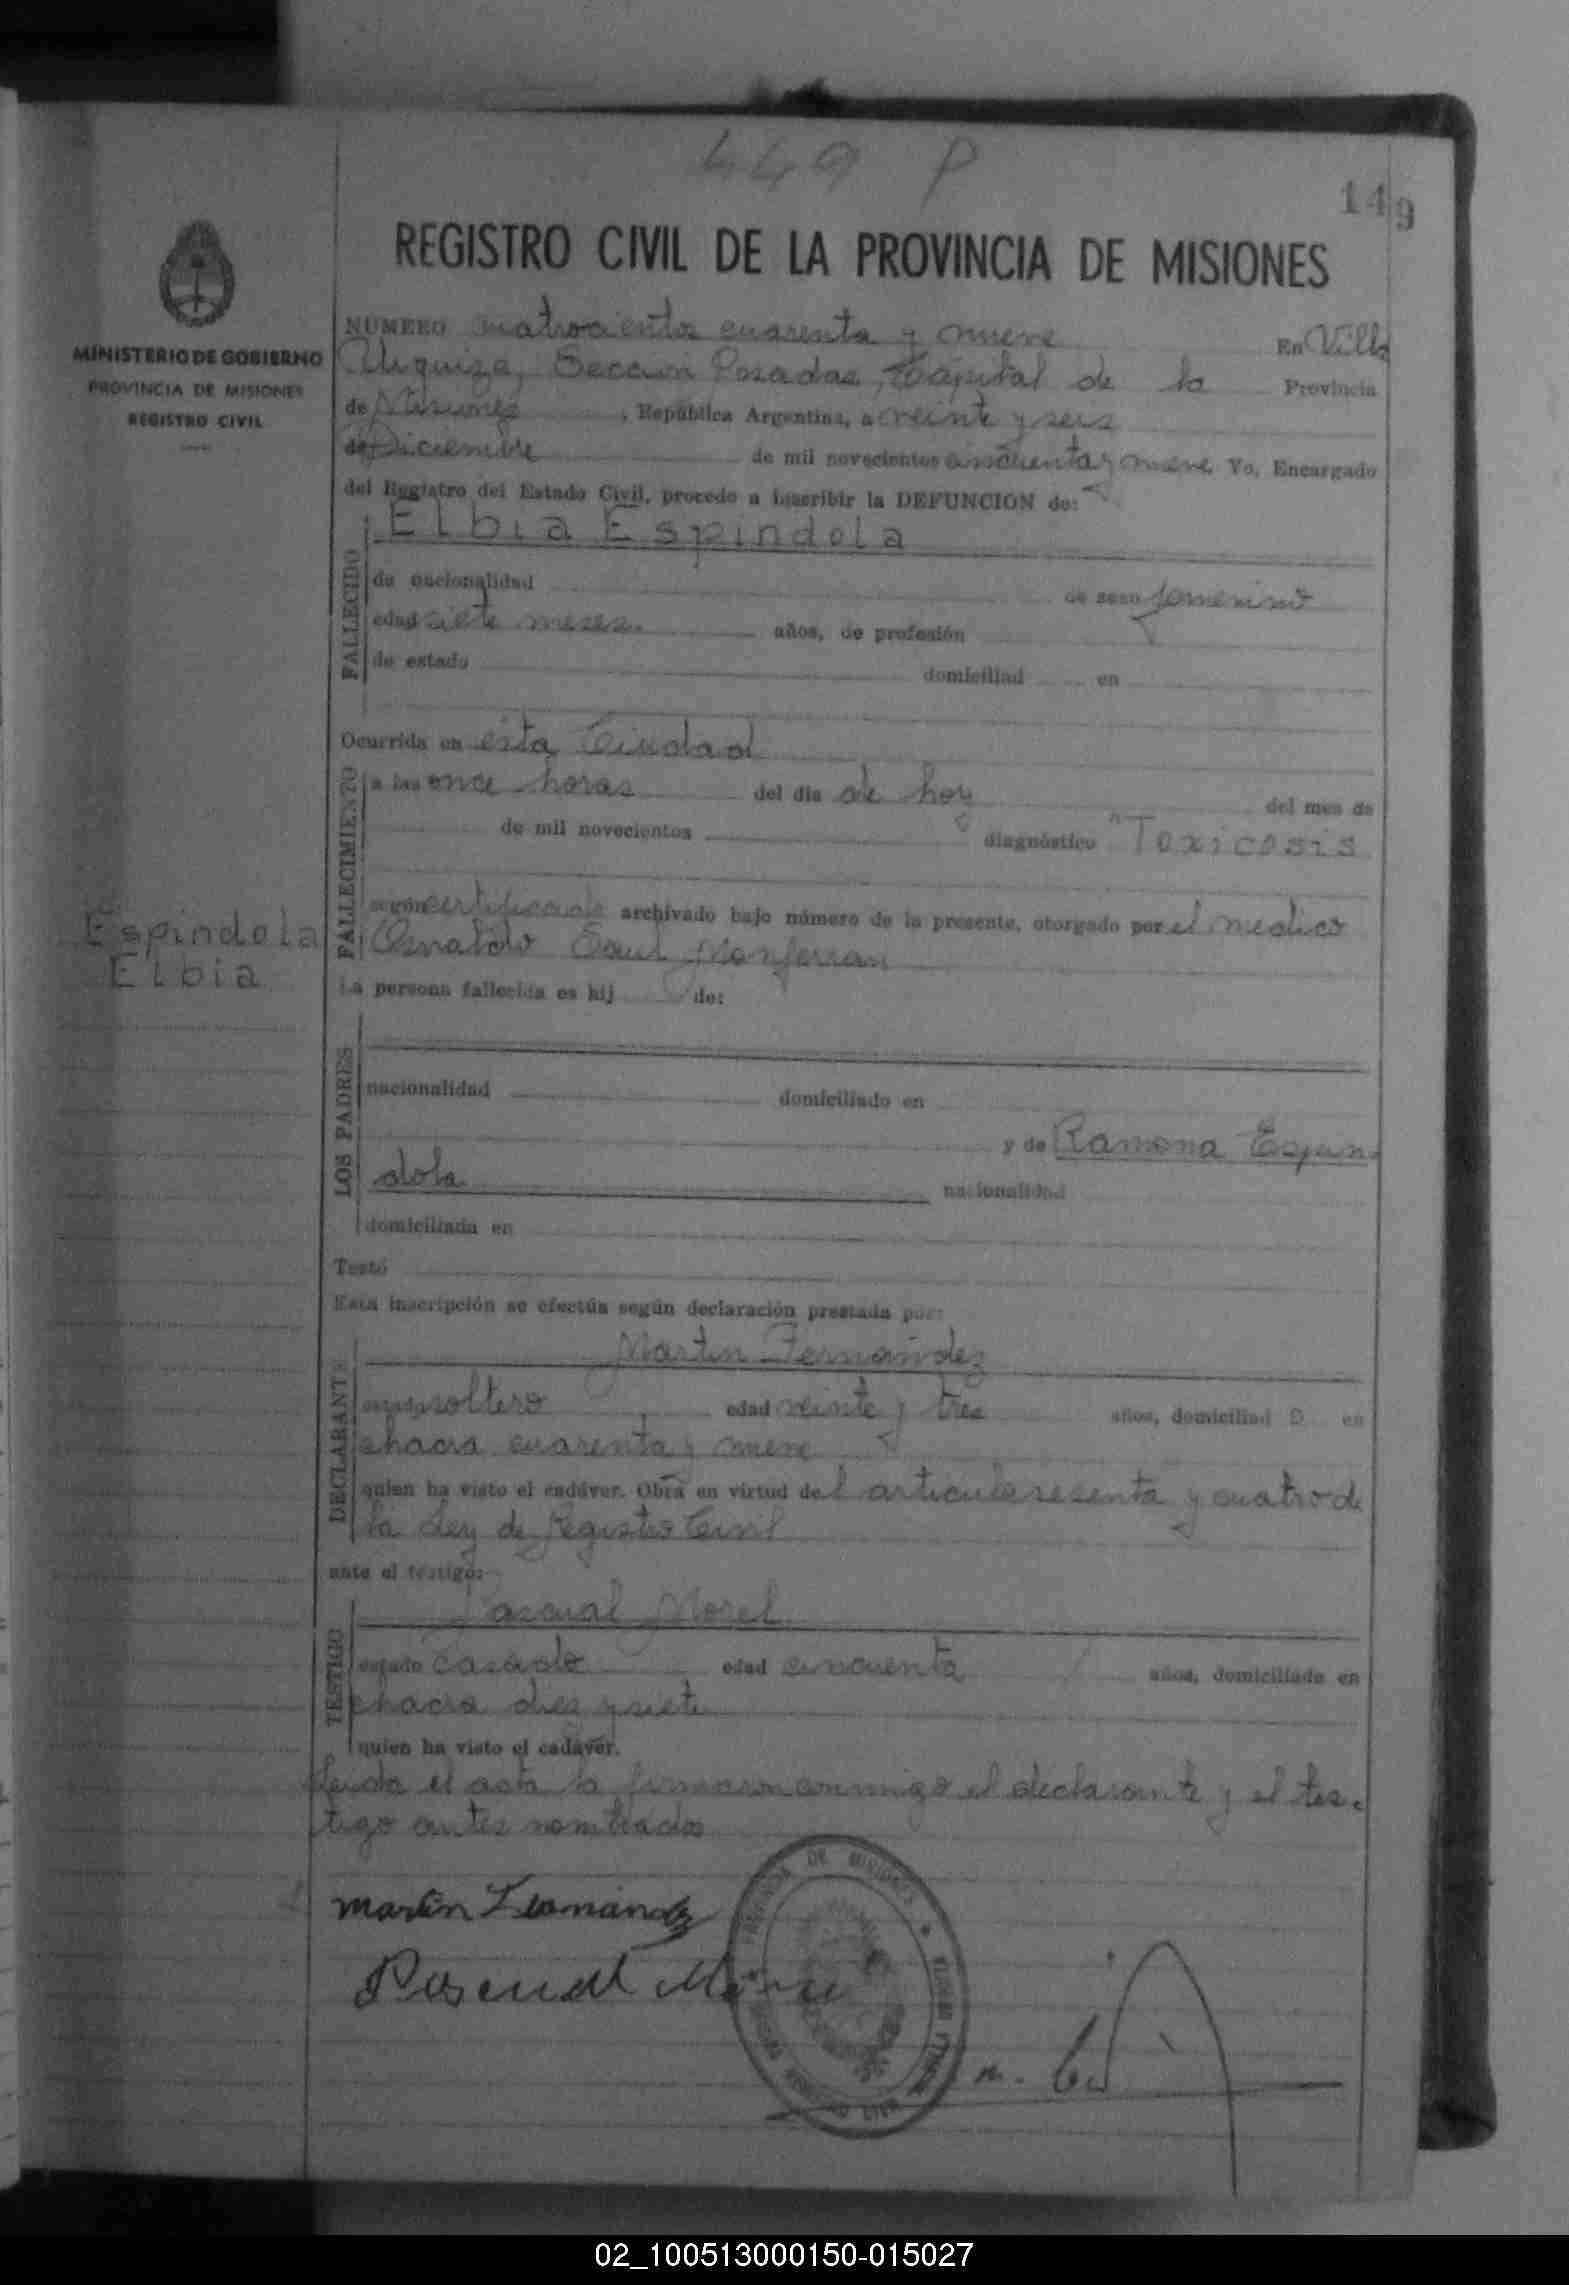 449 P
149
REGISTRO CIVIL DE LA PROVINCIA DE MISIONES
MINISTERIO DE GOBIERNO
PROVINCIA DE MISIONES
REGISTRO CIVIL
NÚMERO cuatrocientos cuarenta y nueve En Villa
Urquiza, Sección Posadas, Capital de la Provincia
de Misiones, República Argentina, a veinte y seis
de Diciembre de mil novecientos cincuenta y nueve Yo, Encargado
del Registro del Estado Civil, procedo a inscribir la DEFUNCION de:
FALLECIDO
Elbia Espindola
de nacionalidad de sexo femenino
edad siete meses. años, de profesión
de estado domiciliad en
FALLECIMIENTO
Ocurrida en esta Ciudad
a las once horas del dia de hoy del mes de
de mil novecientos diagnóstico "Toxicosis
según certificado archivado bajo número de la presente, otorgado por el medico
Osvaldo Saul Monferran
Espindola
Elbia
La persona fallecida es hij de:
LOS PADRES
nacionalidad domiciliado en
y de Ramona Espin
dola nacionalidad
domiciliada en
Testó
Esta inscripción se efectúa según declaración prestada por:
DECLARANTE
Martin Fernández
estado soltero edad veinte y tres años, domiciliad o en
chacra cuarenta y nueve
quien ha visto el cadáver. Obra en virtud del articulo sesenta y cuatro de
la Ley de Registro Civil
ante el testigo:
TESTIGO
Pascual Morel
estado casado edad cincuenta años, domiciliado en
chacra diez y siete
quien ha visto el cadáver.
Leida el acta la firmaron conmigo el declarante y el tes.
tigo antes nombrados
Martin Fernández
Pascual
PROVINCIA DE MISIONES
02_100513000150-015027